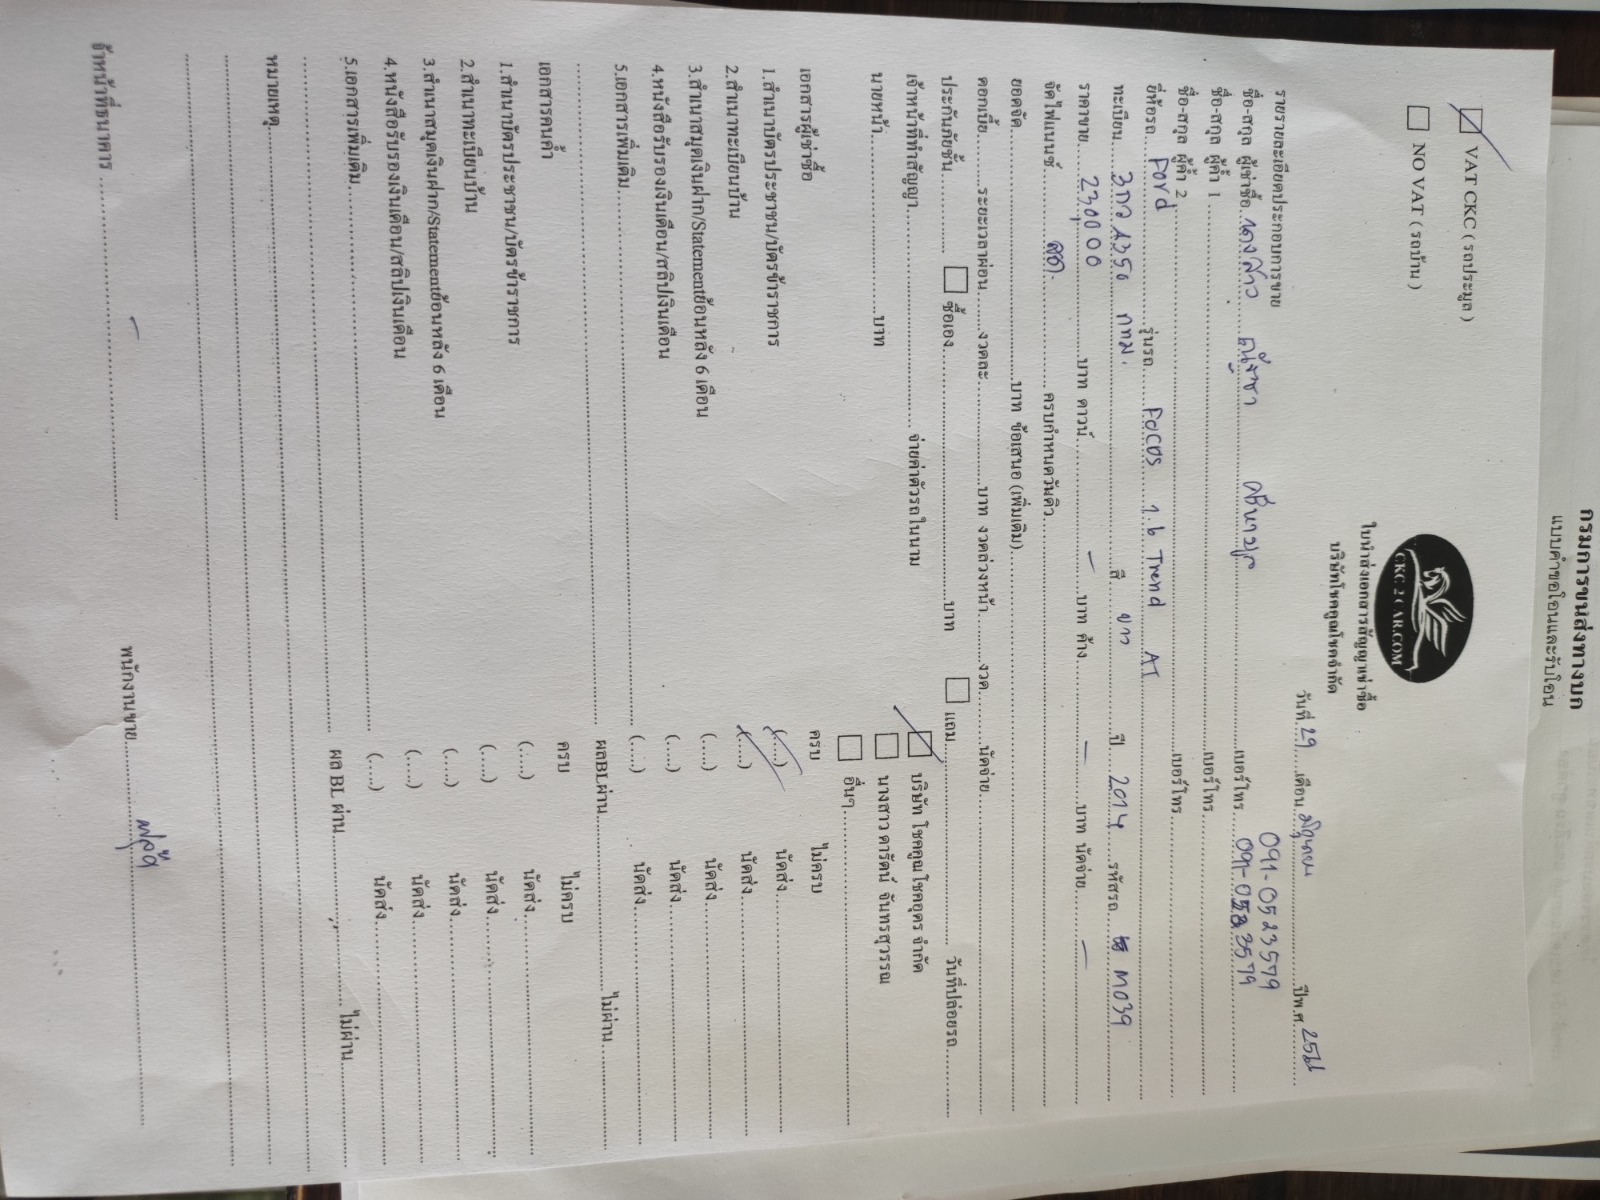 กรมการขนส่งทางบก
แบบคำขอโอนและรับโอน
CKC 2 CAR.COM
VAT CKC ( รถประมูล )
NO VAT ( รถบ้าน )
ใบนำส่งเอกสารสัญญาเช่าซื้อ
บริษัทโชคคูณโชคจำกัด
วันที่ 29 เดือน มิถุนายน ปีพ.ศ 2566
รายรายละเอียดประกอบการขาย
091-0523579
ชื่อ-สกุล ผู้เช่าซื้อ นางสาว เบอร์โทร 091-0523579
ชื่อ-สกุล ผู้ค้ำ 1 เบอร์โทร
ชื่อ-สกุล ผู้ค้ำ 2 เบอร์โทร
ยี่ห้อรถ Ford รุ่นรถ Focus 1.6 Trend AT
ทะเบียน 3กว 2350 กทม. สี ขาว ปี 2014 รหัสรถ M039
ราคาขาย 230000 บาท ดาวน์ - บาท ค้าง - บาท นัดจ่าย -
จัดไฟแนนซ์ สด ครบกำหนดวันคิว
ยอดจัด บาท ข้อเสนอ (เพิ่มเติม)
ดอกเบี้ย ระยะเวลาผ่อน งวดละ บาท งวดล่วงหน้า งวด นัดจ่าย
ประกันภัยชั้น ซื้อเอง บาท แถม วันที่ปล่อยรถ
เจ้าหน้าที่ทำสัญญา จ่ายค่าตัวรถในนาม บริษัท โชคคูณโชคอุดร จำกัด
นายหน้า บาท นางสาว ดารัตน์ จันทรสุวรรณ
อื่นๆ
เอกสารผู้เช่าซื้อ ครบ ไม่ครบ
1.สำเนาบัตรประชาชน/บัตรข้าราชการ (....) นัดส่ง
2.สำเนาทะเบียนบ้าน (....) นัดส่ง
3.สำเนาสมุดเงินฝาก/Statementย้อนหลัง 6 เดือน (....) นัดส่ง
4.หนังสือรับรองเงินเดือน/สลิปเงินเดือน (....) นัดส่ง
5.เอกสารเพิ่มเติม (....) นัดส่ง
ผลBLผ่าน ไม่ผ่าน
เอกสารคนค้ำ ครบ ไม่ครบ
1.สำเนาบัตรประชาชน/บัตรข้าราชการ (....) นัดส่ง
2.สำเนาทะเบียนบ้าน (....) นัดส่ง
3.สำเนาสมุดเงินฝาก/Statementย้อนหลัง 6 เดือน (....) นัดส่ง
4.หนังสือรับรองเงินเดือน/สลิปเงินเดือน (....) นัดส่ง
5.เอกสารเพิ่มเติม (....) นัดส่ง
ผล BL ผ่าน ไม่ผ่าน
หมายเหตุ
จ้าหน้าที่ธนาคาร - พนักงานขาย